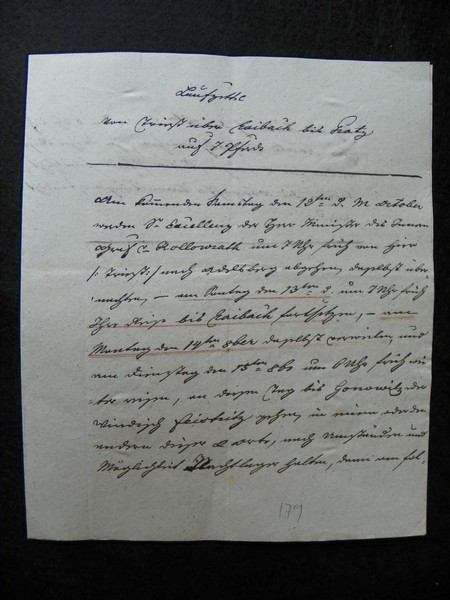 Laufzettl
von Triest über Laibach bis Gratz
auf 7 Pferde
Am kommenden Samstag den 12ten d. M. October
werden Sr Excellenz der Herr Minister des Innern
Graf v. Kollowrath um 7 Uhr früh von hier
/: Triest :/ nach Adelsberg abgehen, daselbst über-
nachten, – am Sontag den 13ten d. um 7 Uhr früh
Ihre Reise bis Laibach fortsetzen, – am
Montag den 14ten 8ber daselbst verweilen, und
am Dienstag den 15ten 8b um 6 Uhr früh wei-
ter reisen, an diesem Tag bis Gonowitz oder
Windisch Feistritz gehen, in einem oder dem
andern dieser 2 Orte, nach Umständen und
Möglichkeit Nachtlager halten, dann am fol-
179